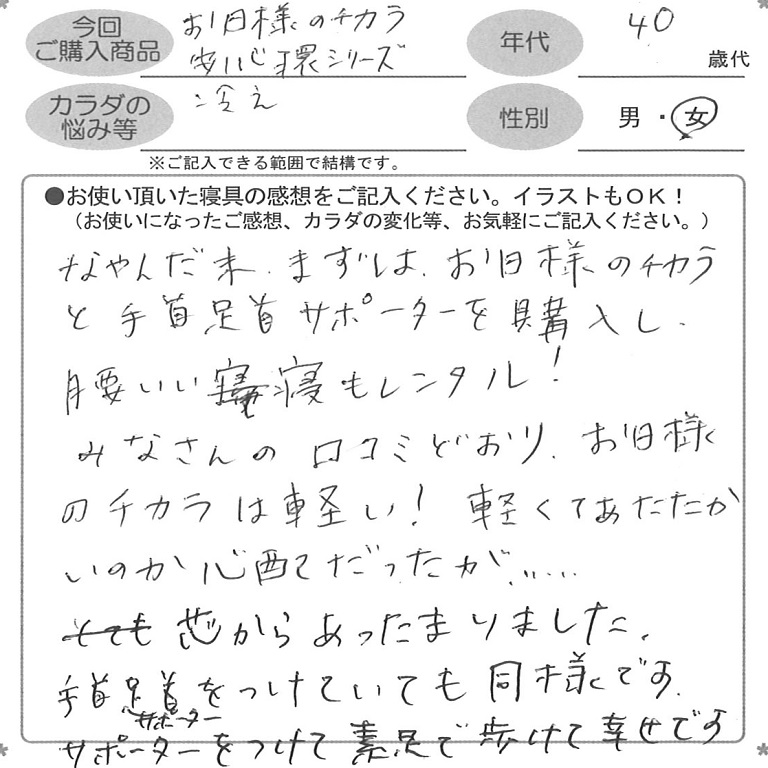 今回
ご購入商品
お日様のチカラ
安心環シリーズ
年代
40
歳代
カラダの
悩み等
冷え
性別
男・女
※ご記入できる範囲で結構です。
●お使い頂いた寝具の感想をご記入ください。イラストもOK！
（お使いになったご感想、カラダの変化等、お気軽にご記入ください。）
なやんだ末、まずは、お日様のチカラ
と手首足首サポーターを購入し、
腰いい寝もレンタル！
みなさんの口コミどおり、お日様
のチカラは軽い！軽くてあたたか
いのか心配だったが……
とても芯からあったまりました。
手首足首をつけていても同様です。
サポーター
サポーターをつけて素足で歩けて幸せです